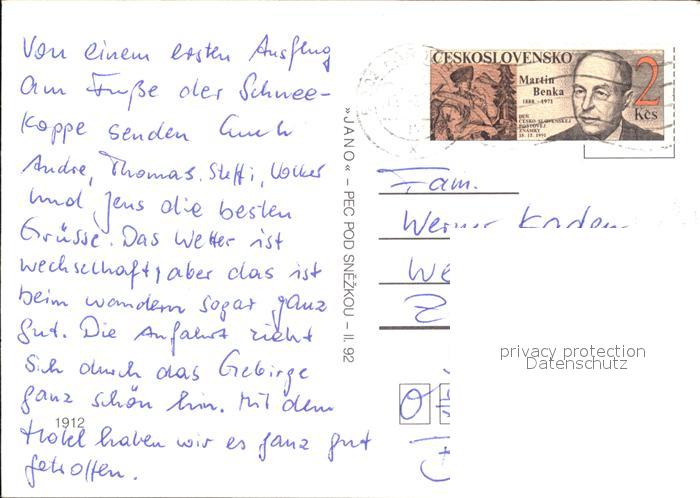 Von einem ersten Ausflug
am Fuße der Schnee-
koppe senden Euch
Andre, Thomas, Steffi, Volker
und Jens die besten
Grüsse. Das Wetter ist
wechselhaft, aber das ist
beim wandern sogar ganz
gut. Die Anfahrt zieht
sich durch das Gebirge
ganz schön hin. Mit dem
Hotel haben wir es ganz gut
getroffen.
1912
»JANO« – PEC POD SNĚŽKOU – II. 92
ČESKOSLOVENSKO
Martin
Benka
1888 - 1971
DEN
ČESKO-SLOVENSKEJ
POŠTOVEJ
ZNÁMKY
18. 12. 1991
2
Kčs
Fam.
Werner
We
privacy protection
Datenschutz